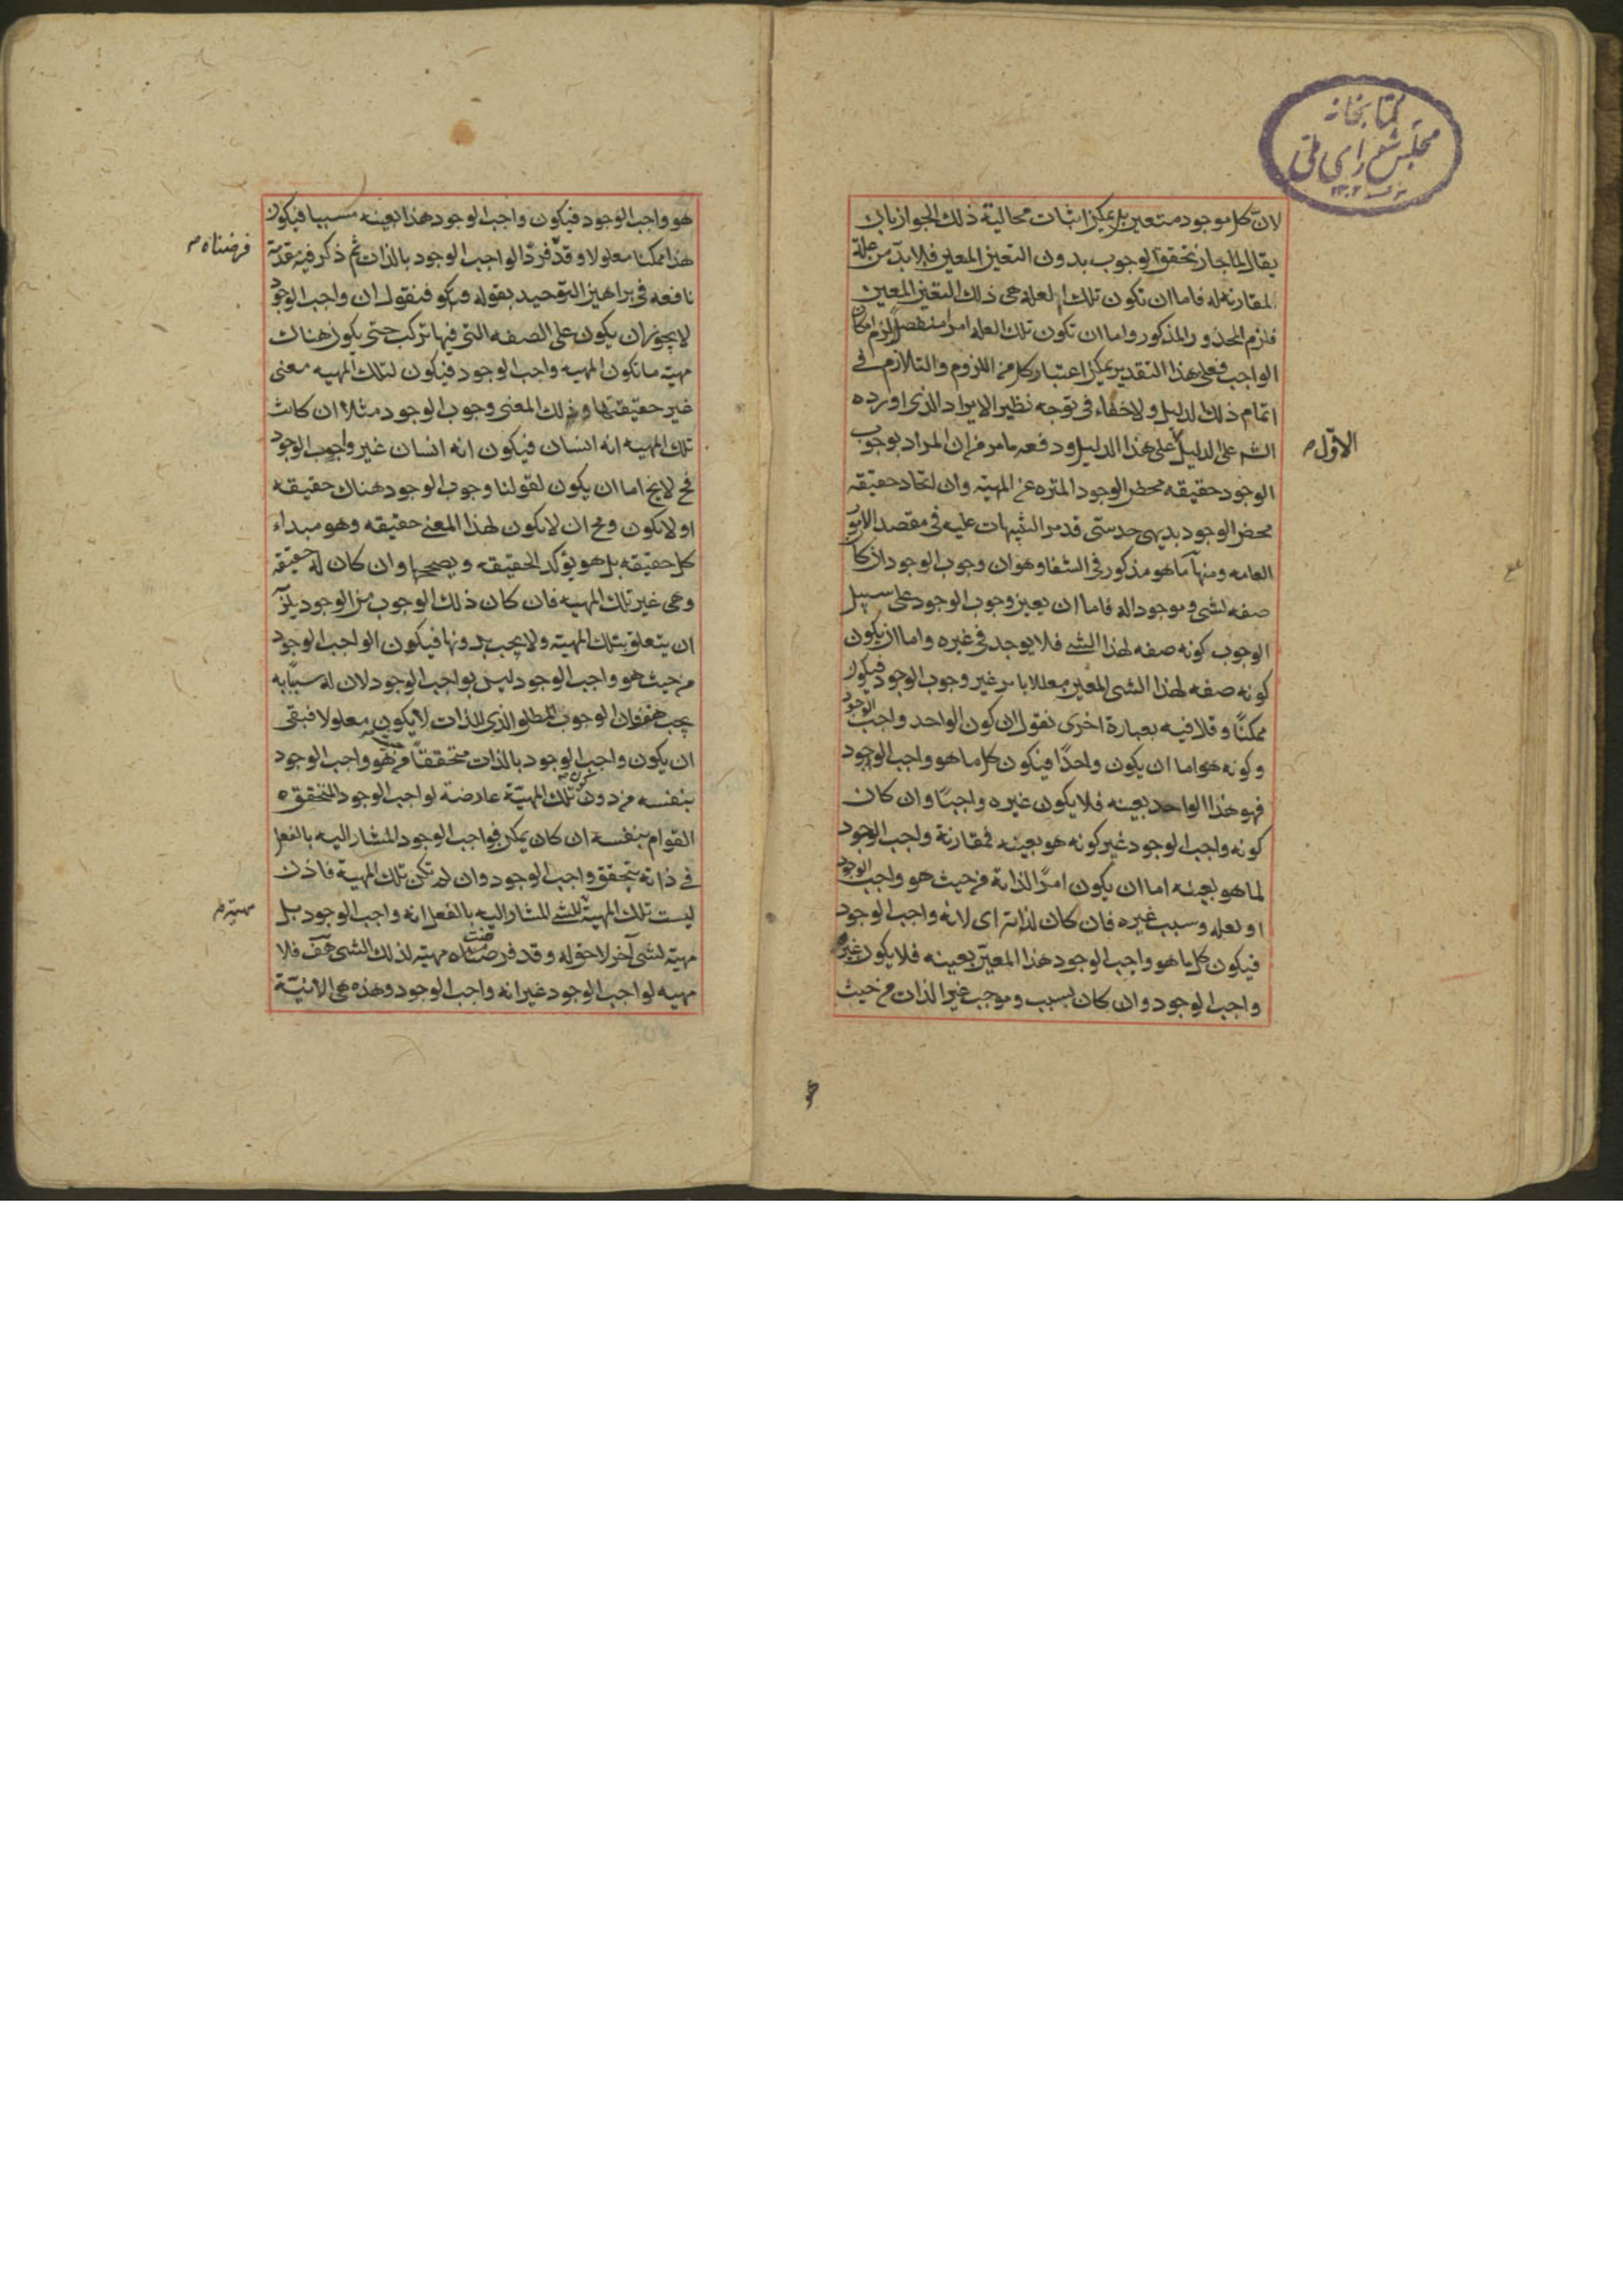 كتابخانه
مجلس شورای ملی
لان كل موجود متعين بل يمكن اثبات محالية ذلك الجواز بان
يقال لما جاز تحقق الوجوب بدون التعين المعين فلا بد من علة
لمقارنته له فاما ان تكون تلك العلة هى ذلك التعين المعين
فلزم المحذور المذكور واما ان تكون تلك العله امرا منفصلا لزم امكان
الواجب فعلى هذا التقدير يمكن اعتبار كل من اللزوم والتلازم فى
اتمام ذلك الدليل ولا خفاء فى توجه نظير الايراد الذى اورده
الش على الدليل على هذا الدليل ودفعه مامر من ان المراد بوجوب
الاول
الوجود حقيقه محض الوجود المنزه عن المهية وان اتحاد حقيقه
محض الوجود بديهى حدستى قد مر التنبيهات عليه فى مقصد الامور
العامه ومنها ما هو مذكور فى الشفا وهو ان وجوب الوجود اذا كان
صفه لشى وموجودا له فاما ان يعين وجوب الوجود على سبيل
الوجوب كونه صفه لهذا الشى فلا يوجد فى غيره واما ان يكون
كونه صفه لهذا الشى المعين معللا بامر غير وجوب الوجود فيكون
ممكنا وقلا فيه بعبارة اخرى نقول ان كون الواحد واجب الوجود
وكونه هو اما ان يكون واحدا فيكون كل ما هو واجب الوجود
فهو هذا الواحد بعينه فلا يكون غيره واجبا وان كان
كونه واجب الوجود غير كونه هو بعينه فمقارنة واجب الوجود
لما هو بعينه اما ان يكون امرا لذاته من حيث هو واجب الوجود
او لعله وسبب غيره فان كان لذاته اى لانه واجب الوجود
فيكون كل ما هو واجب الوجود هذا المعين بعينه فلا يكون غيره
واجب الوجود وان كان بسبب وموجب غير الذات من حيث
هو واجب الوجود فيكون واجب الوجود هذا بعينه سببيا فيكون
هذا ممكنا معلولا وقد فرد الواجب الوجود بالذات ثم ذكر فيه مقدمة
فرضناه
نافعه فى براهين التوحيد بقوله فنقول ان واجب الوجود
لا يجوز ان يكون على الصفه التى فيها تركب حتى يكون هناك
مهية ما تكون المهيه واجب الوجود فيكون لتلك المهيه معنى
غير حقيقتها وذلك المعنى وجوب الوجود مثلا ان كانت
تلك المهيه انه انسان فيكون انه انسان غير واجب الوجود
فح لا يخ اما ان يكون لقولنا وجوب الوجود هناك حقيقه
او لا يكون ومح ان لا يكون لهذا المعنى حقيقه وهو مبداء
كل حقيقه بل هو يؤكد الحقيقه ويصححها وان كان له حقيقه
وهى غير تلك المهيه فان كان ذلك الوجوب من الوجود يلزمه
ان يتعلق بتلك المهية ولا يجب بدونها فيكون الواجب الوجود
من حيث هو واجب الوجود ليس بواجب الوجود لان له سببا به
يجب هف فان الوجوب المطلق الذى للذات لا يكون معلولا فبقى
ان يكون واجب الوجود بالذات متحققا من حيث هو واجب الوجود
بنفسه من دون تلك المهية عارضة لواجب الوجود المتحقق
القوام بنفسه ان كان يمكن فواجب الوجود المشار اليه بالفعل
فى ذاته يتحقق واجب الوجود وان لم تكن تلك المهية فاذن
ليست تلك المهية للشى المشار اليه بالفعل انه واجب الوجود بل
مهية
مهية لشى آخر لاحق له وقد فرضناه مهية لذلك الشى هف فلا
مهيه لواجب الوجود غير انه واجب الوجود وهذه هى الانية